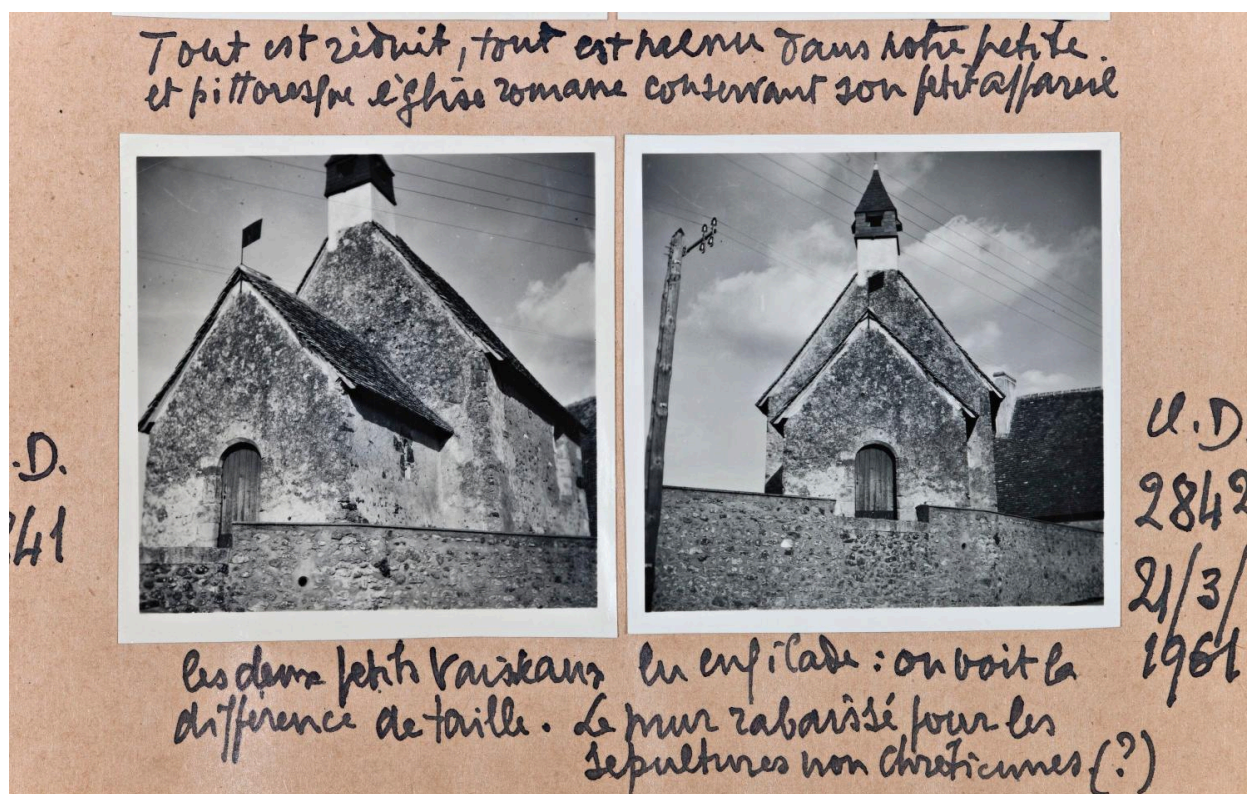 Tout est réduit, tout est menu dans notre petite
et pittoresque église romane conservant son petit appareil
.D.
41
U.D.
2842
21/3/
1961
les deux petits vaisseaux en enfilade : on voit la
différence de taille. Le mur rabaissé pour les
sépultures non chrétiennes. (?)